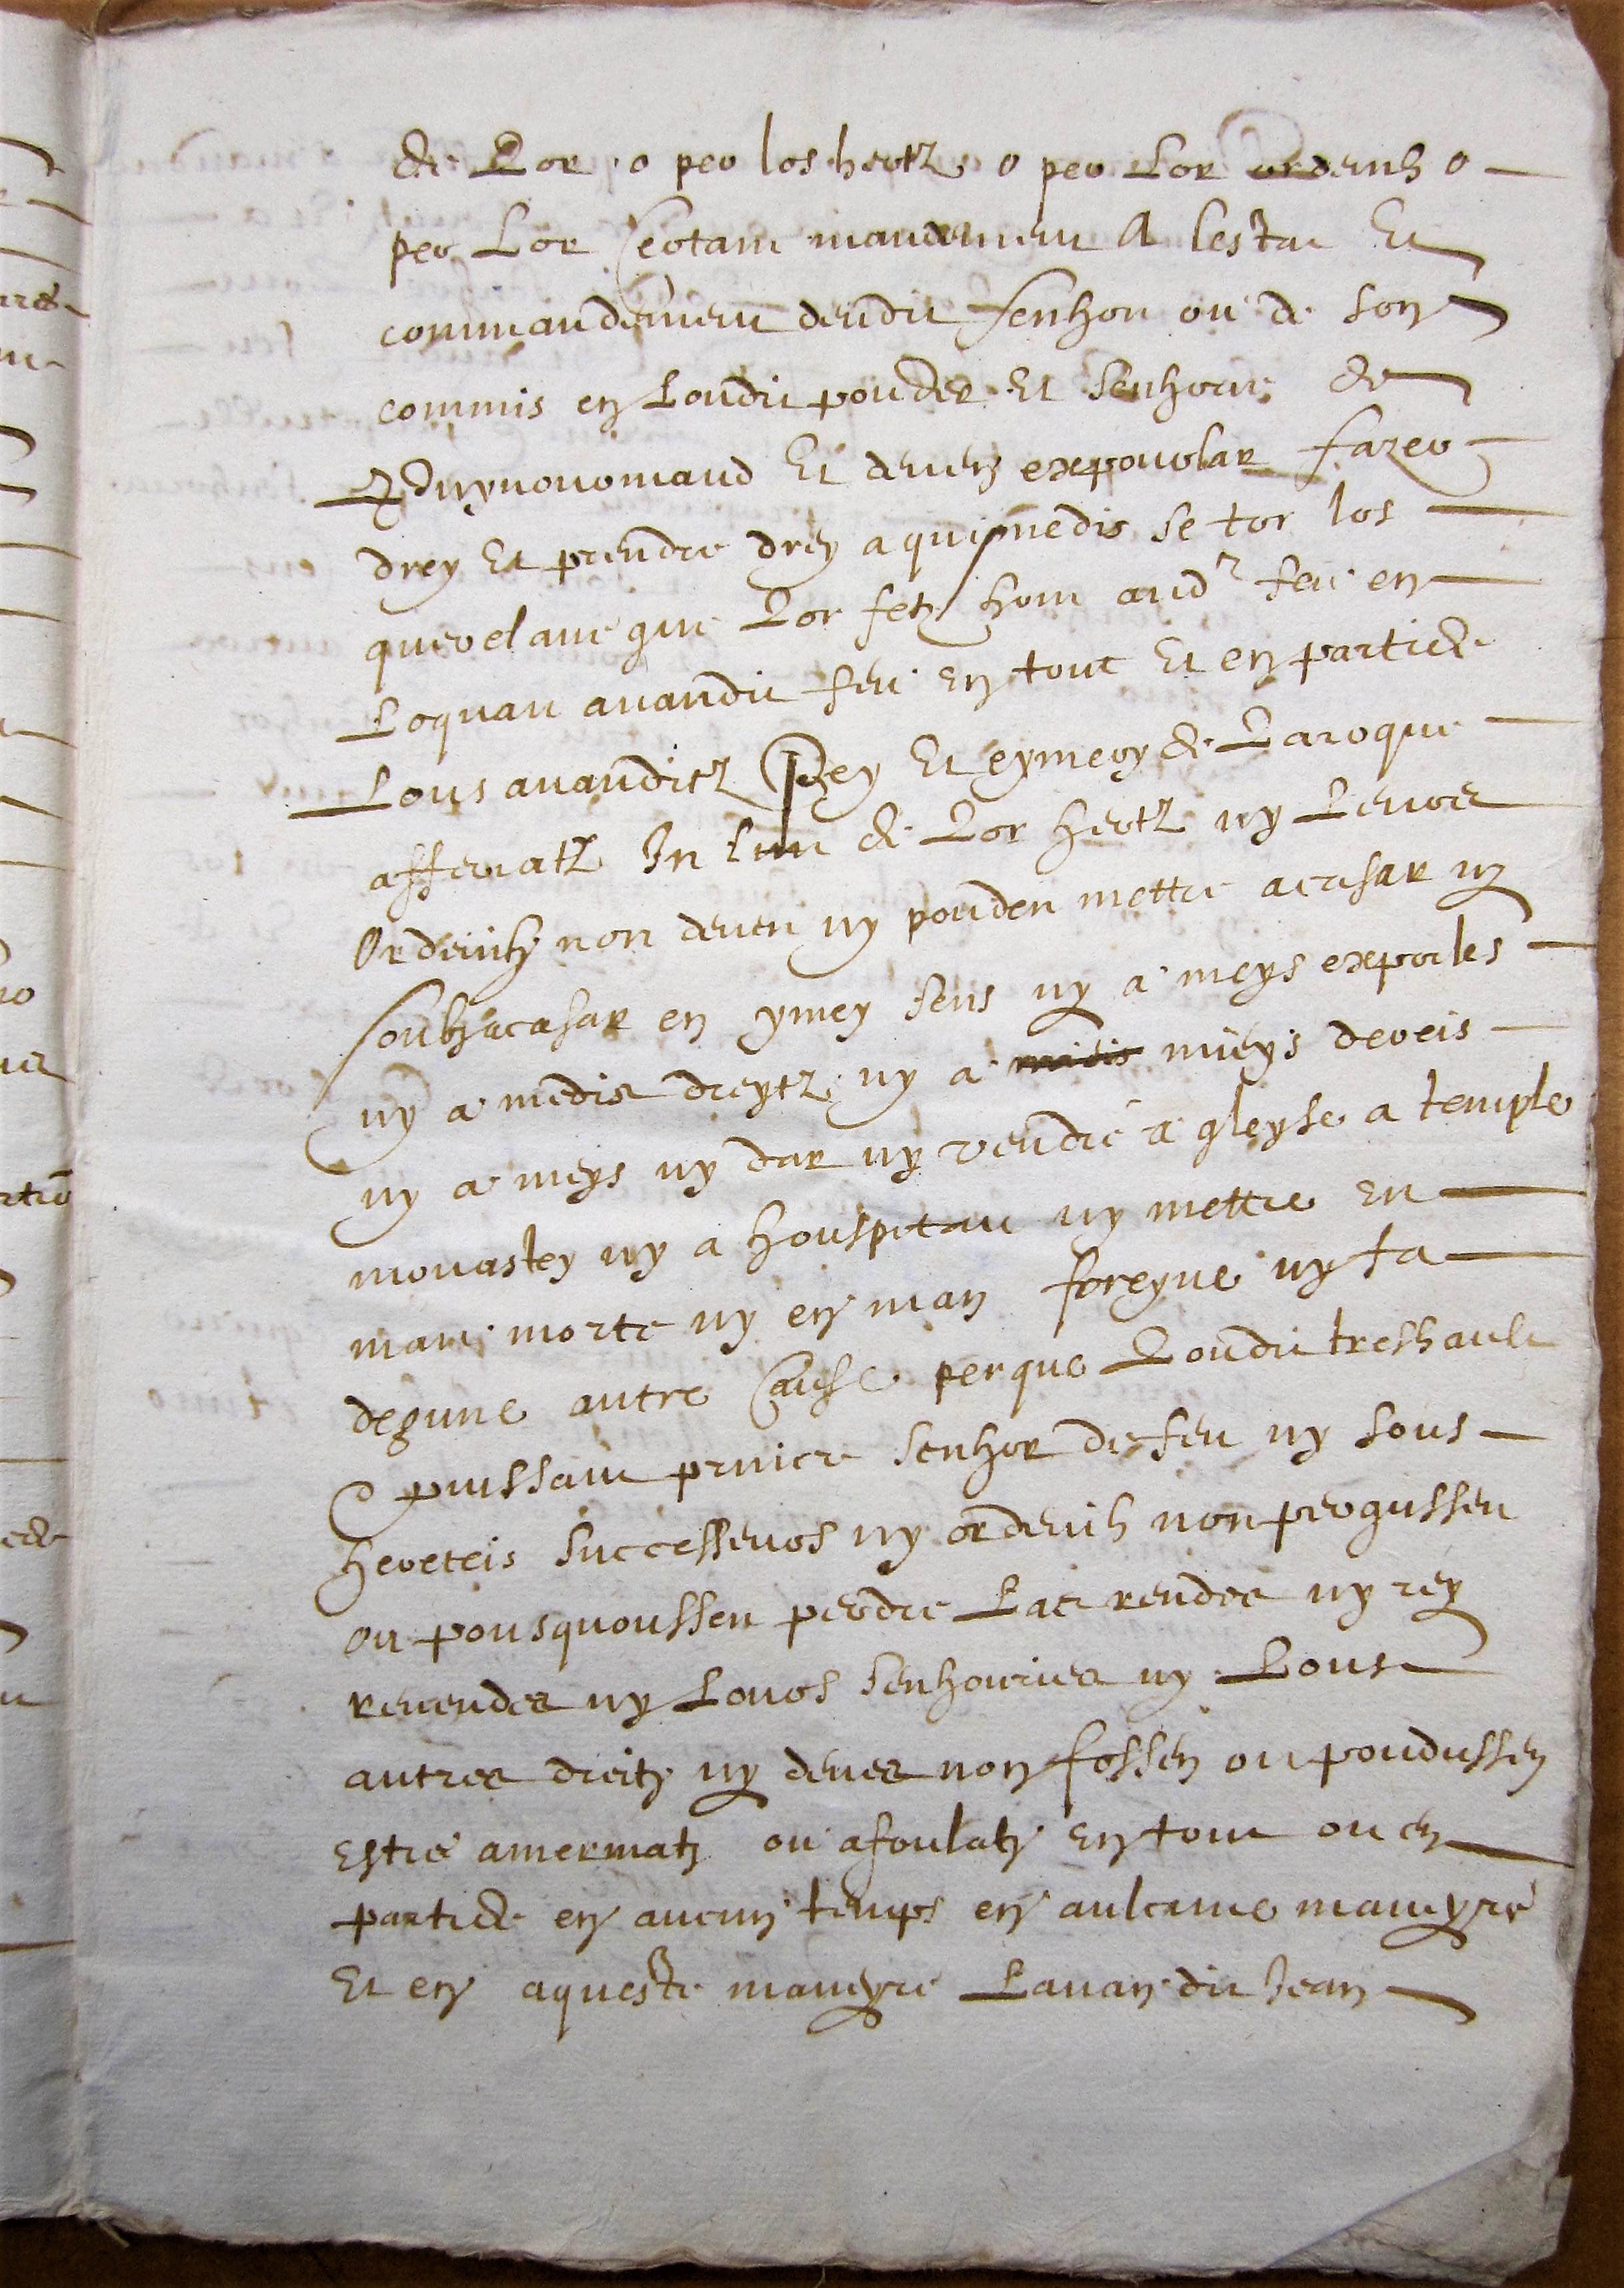 de Lor o per los hertz o per Lor ordenh o
per Lor certan mandement A lestat Et
commandement deudit senhor ou de son
commis en Loudit pouder Et senhorie de
Et deuen expourlar fazer
drey Et prendre drey aquimedis se tor los
querelaue que Lor fetz hom aud feu en
Loquau auandit feu en tout Et en partide
Lous auanditz Rey Et eymery de Laroque
affeuatz In lun de Lor hertz ny Leurs
Ordeinh non deuen ny pouden mettre acasar ny
soubzacasar en ymey sens ny a meys exporles
ny a medis dreytz ny a mieis mieys dereis
ny a meys ny dar ny vendre a gleyse a temple
monastey ny a houspitau ny mettre en
man morte ny en man foreyne ny fa
degune autre Cause perque Loudit treshault
puissant prince senhor de feu ny sous
hereteis successeurs ny ordenh non pergussen
ou pousquoussen perdre Las rendes ny rey
reuendes ny Lours senhouries ny Lous
autres dreitz ny deues non fossen ou poudussen
Estre amermatz ou afoulatz en tout ou en
partide en aucun temps en aulcune maneyre
Et en aqueste maneyre Lauandit Jean